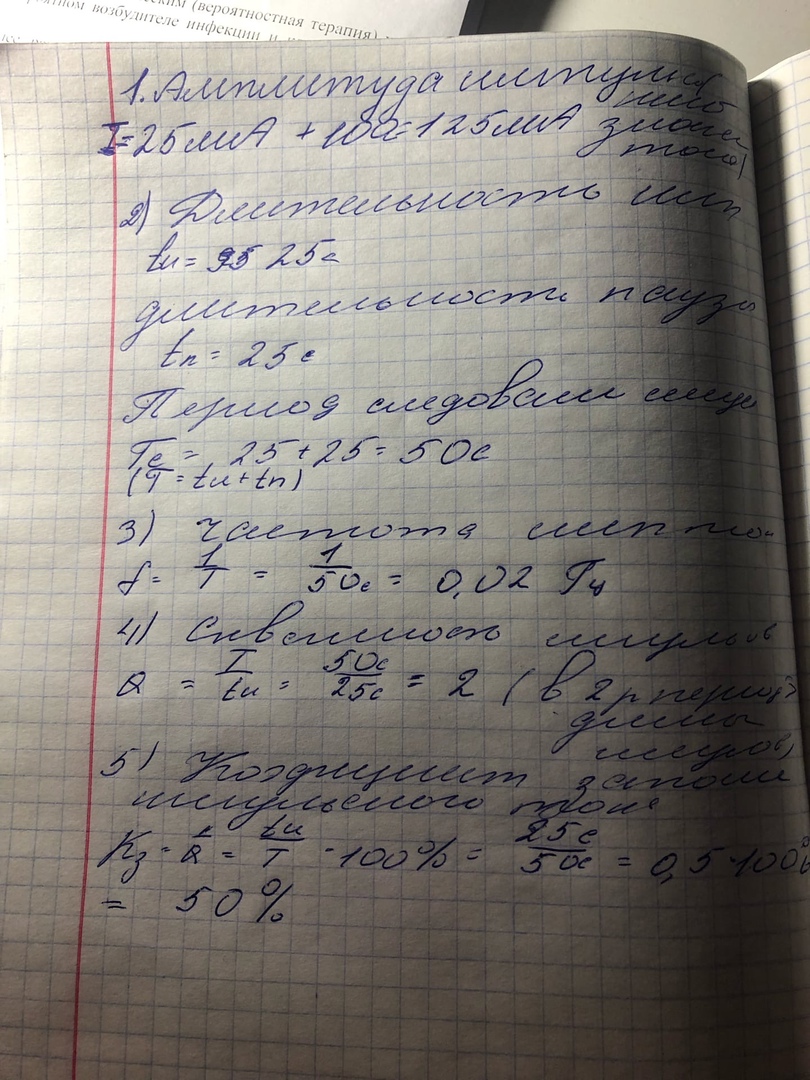 ским (вероятностная терапия)
возбудителе инфекции и
1. Амплитуда импульс
I=25мА + 100=125мА
знач
тока)
2) Длительность имп
tи= 25с
длительность паузы
tп = 25с
Период следован импул
Tс = 25+25= 50с
(T=tи+tп)
3) Частота имп то
f= 1/T = 1/50с = 0,02 Гц
4) Скважность импульсов
Q = T/tи = 50с/25с = 2 (в 2 р период >
длины
импульсов)
5) Коэфициент заполн
импульсного тока
Kз = 1/Q = tи/T · 100% = 25с/50с = 0,5·100%
= 50%